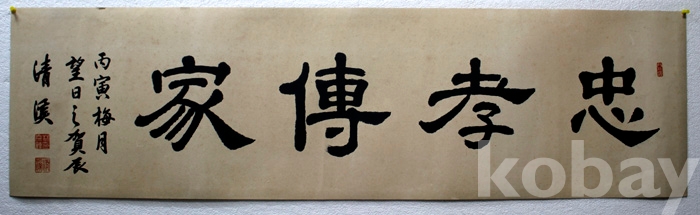 忠孝傳家
丙寅梅月
望日之賀辰
清溪
kobay